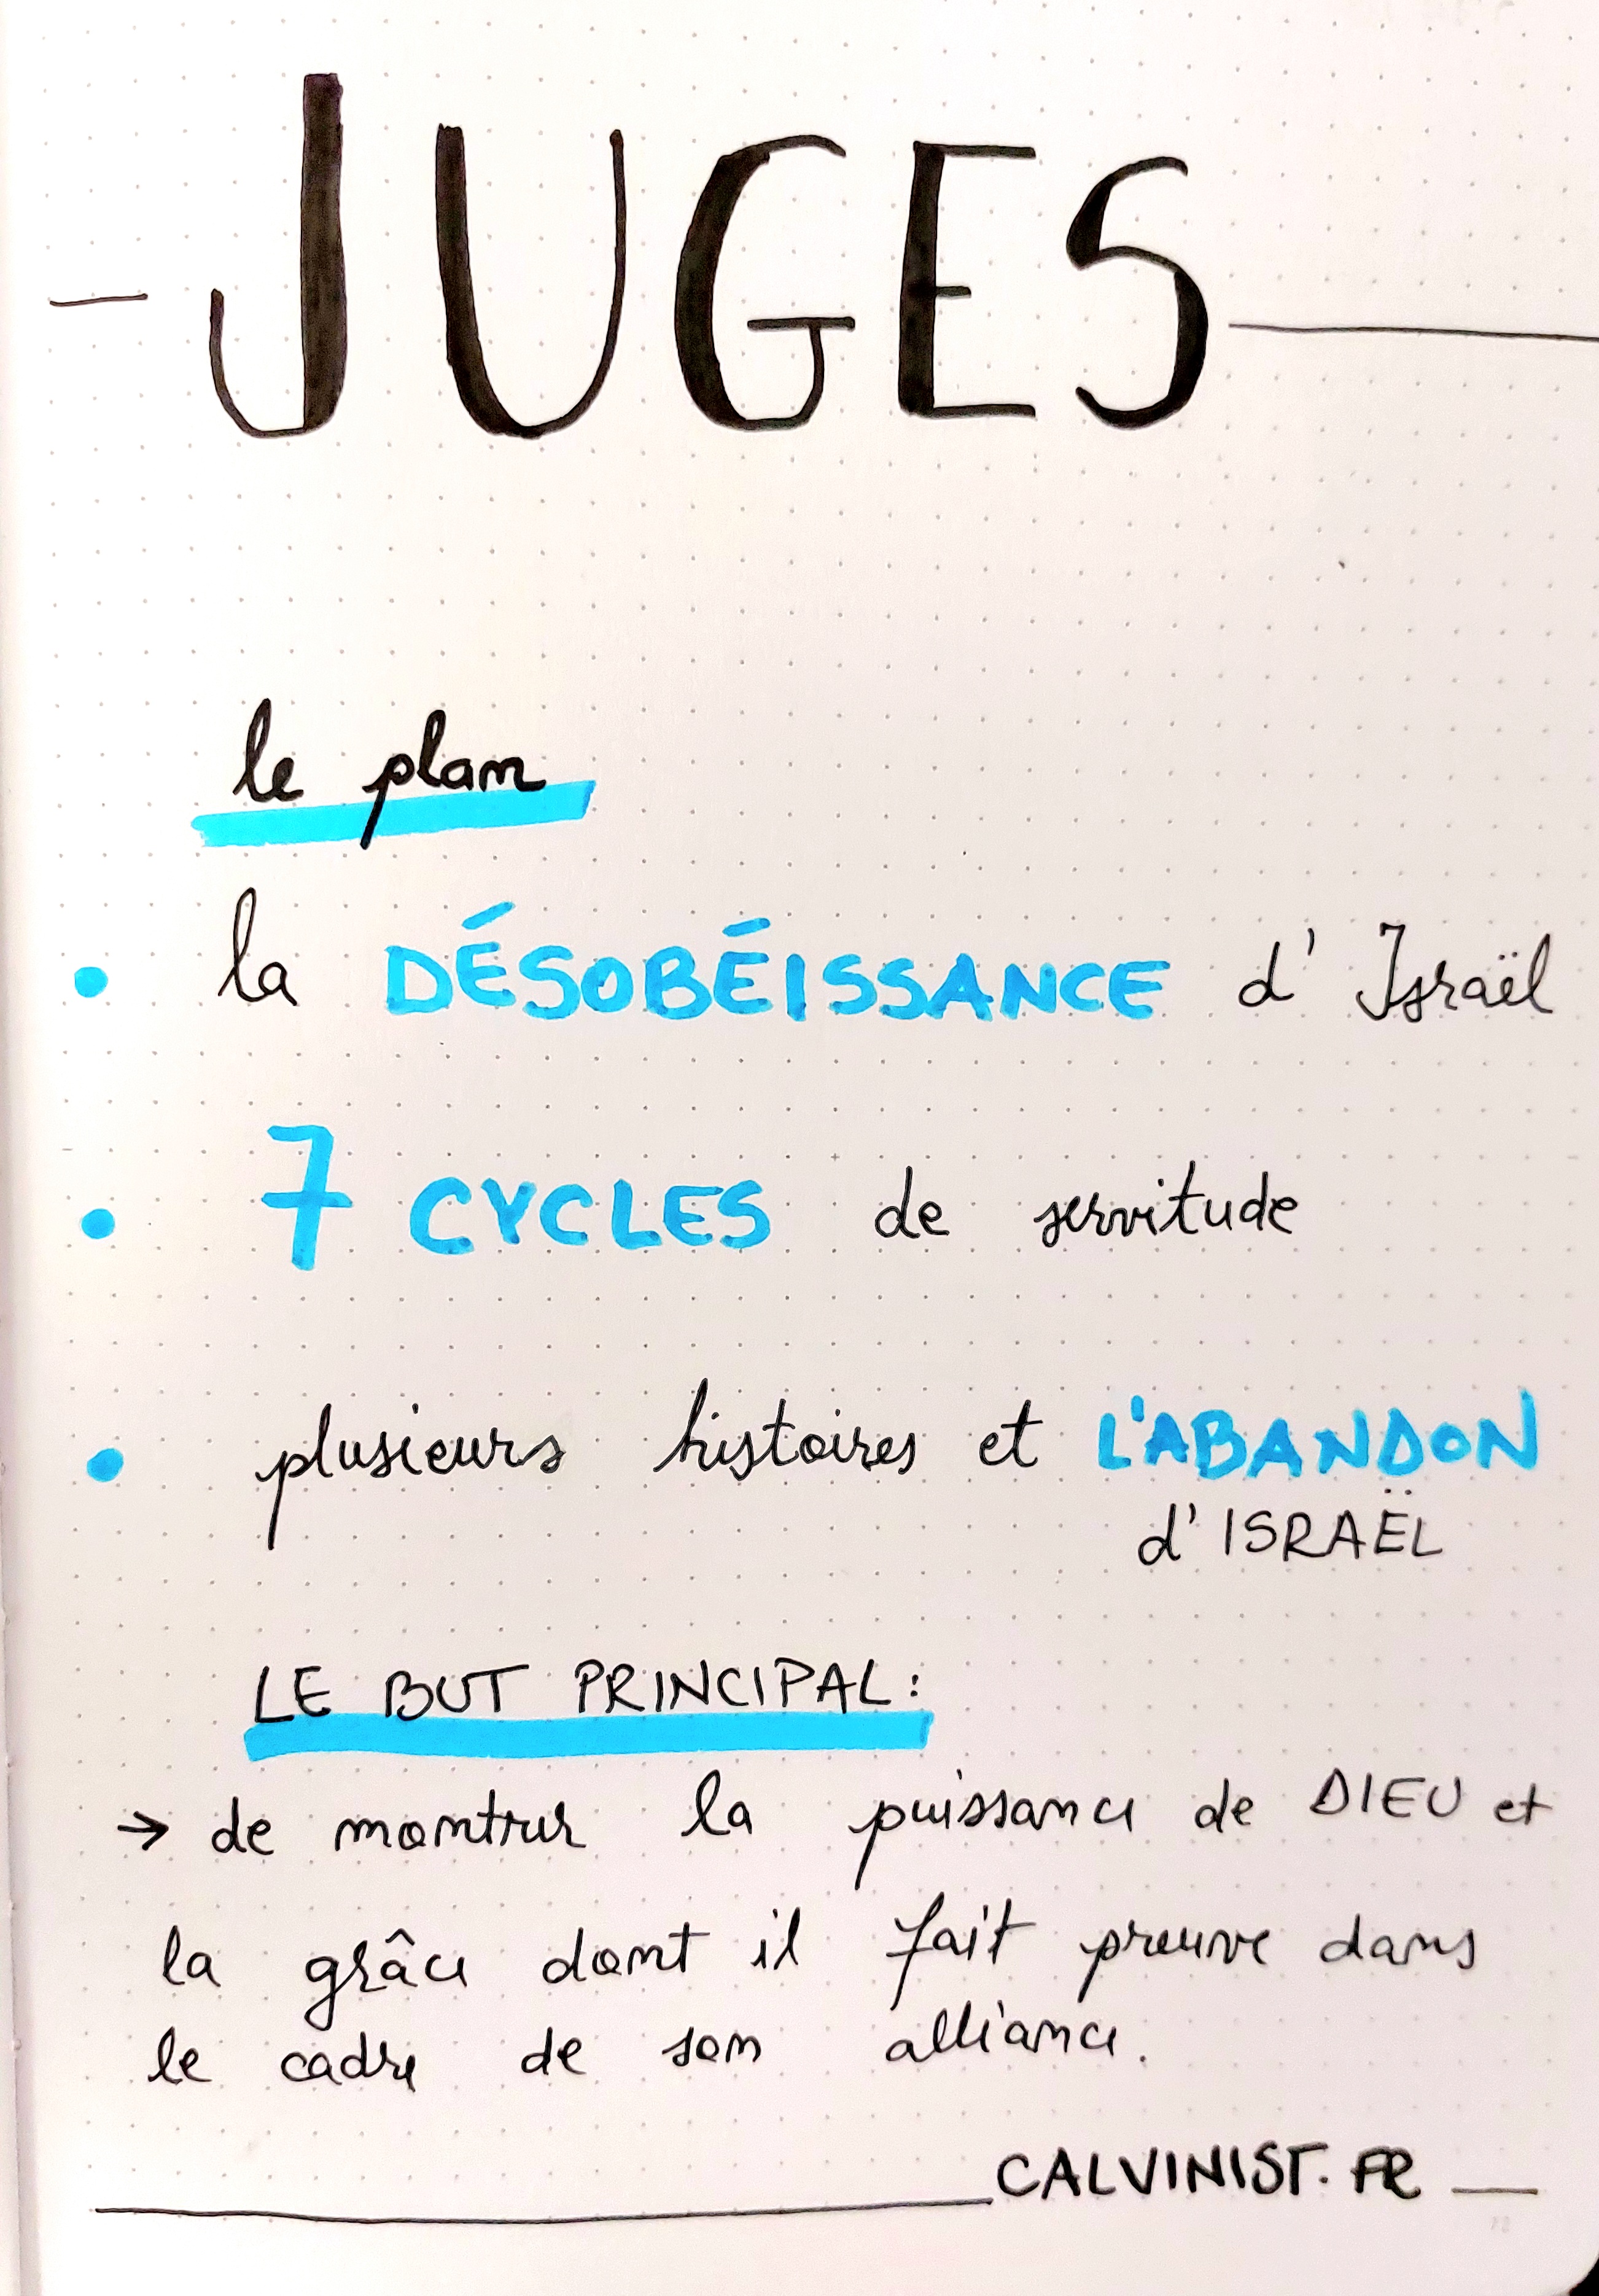 JUGES
le plan
• la DÉSOBÉISSANCE d'Israël
• 7 CYCLES de servitude
• plusieurs histoires et L'ABANDON
d'ISRAËL
LE BUT PRINCIPAL:
→ de montrer la puissance de DIEU et
la grâce dont il fait preuve dans
le cadre de son alliance.
CALVINIST.FR